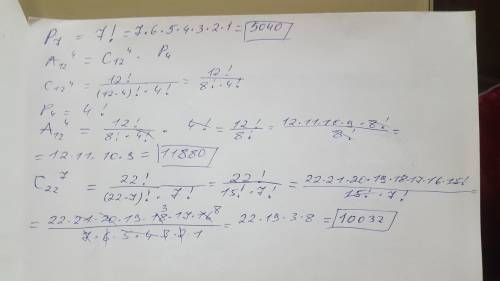 P₇ = 7! = 7·6·5·4·3·2·1 = 5040
A₁₂⁴ = C₁₂⁴ · P₄
C₁₂⁴ = 12! / (12-4)! · 4! = 12! / 8! · 4!
P₄ = 4!
A₁₂⁴ = 12! / 8! · 4! · 4! = 12! / 8! = 12·11·10·9·8! / 8! =
= 12·11·10·9 = 11880
C₂₂⁷ = 22! / (22-7)! · 7! = 22! / 15! · 7! = 22·21·20·19·18·17·16·15! / 15! · 7! =
= 22·21·20·19·18·17·16 / 7·6·5·4·3·2·1 = 22·19·3·8 = 10032